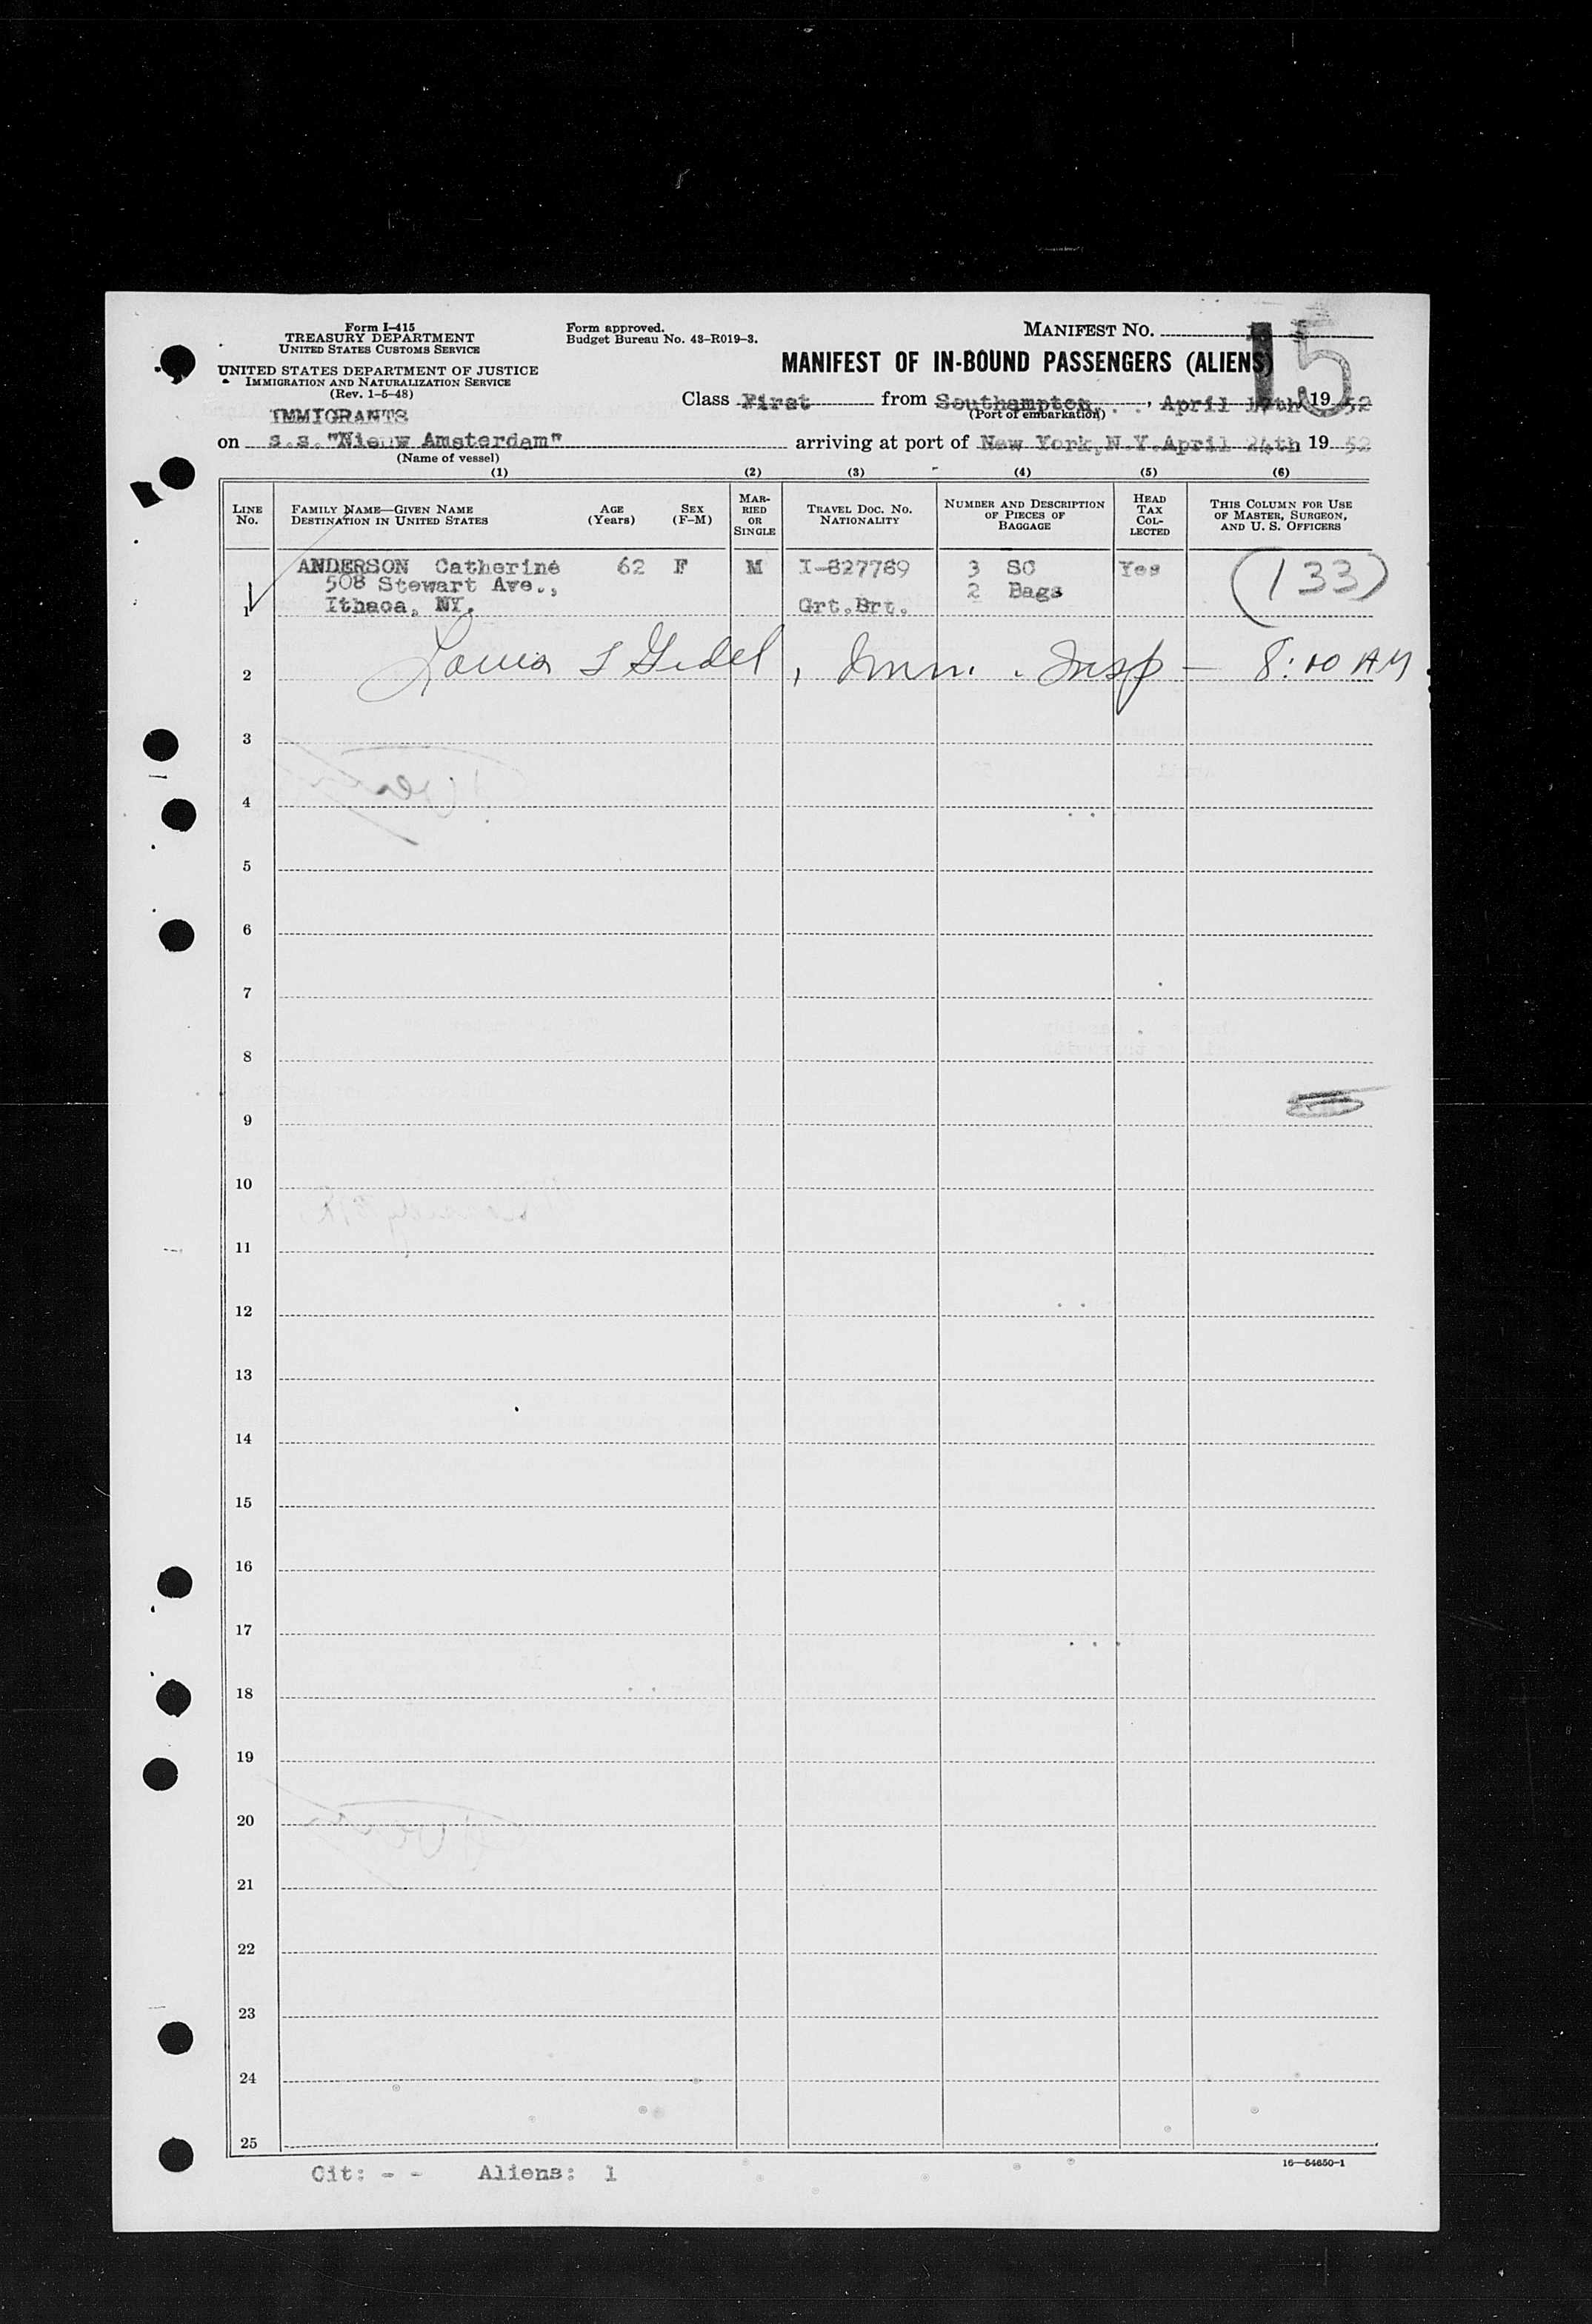 Form I-415
TREASURY DEPARTMENT
UNITED STATES CUSTOMS SERVICE
UNITED STATES DEPARTMENT OF JUSTICE
IMMIGRATION AND NATURALIZATION SERVICE
(Rev. 1-5-48)
Form approved.
Budget Bureau No. 43-R019-3.
MANIFEST NO.
15
MANIFEST OF IN-BOUND PASSENGERS (ALIENS)
IMMIGRANTS
Class First from Southampton, April 17th 19 52
(Port of embarkation)
on s.s. "Nieuw Amsterdam" arriving at port of New York, N.Y. April 24th 19 52
(Name of vessel)
(1) (2) (3) (4) (5) (6)
LINE NO.
FAMILY NAME—GIVEN NAME
DESTINATION IN UNITED STATES
AGE
(Years)
SEX
(F-M)
MAR-
RIED
OR
SINGLE
TRAVEL DOC. NO.
NATIONALITY
NUMBER AND DESCRIPTION
OF PIECES OF
BAGGAGE
HEAD
TAX
COL-
LECTED
THIS COLUMN FOR USE
OF MASTER, SURGEON,
AND U. S. OFFICERS
ANDERSON Catherine 62 F M I-827789 3 SC Yes (133)
508 Stewart Ave., 2 Bags
1 Ithaca, NY. Grt.Brt.
2 Louis I , Imm. Insp — 8:10 AM
3
4
5
6
7
8
9
10
11
12
13
14
15
16
17
18
19
20
21
22
23
24
25
Cit: - - Aliens: 1
16—54650-1